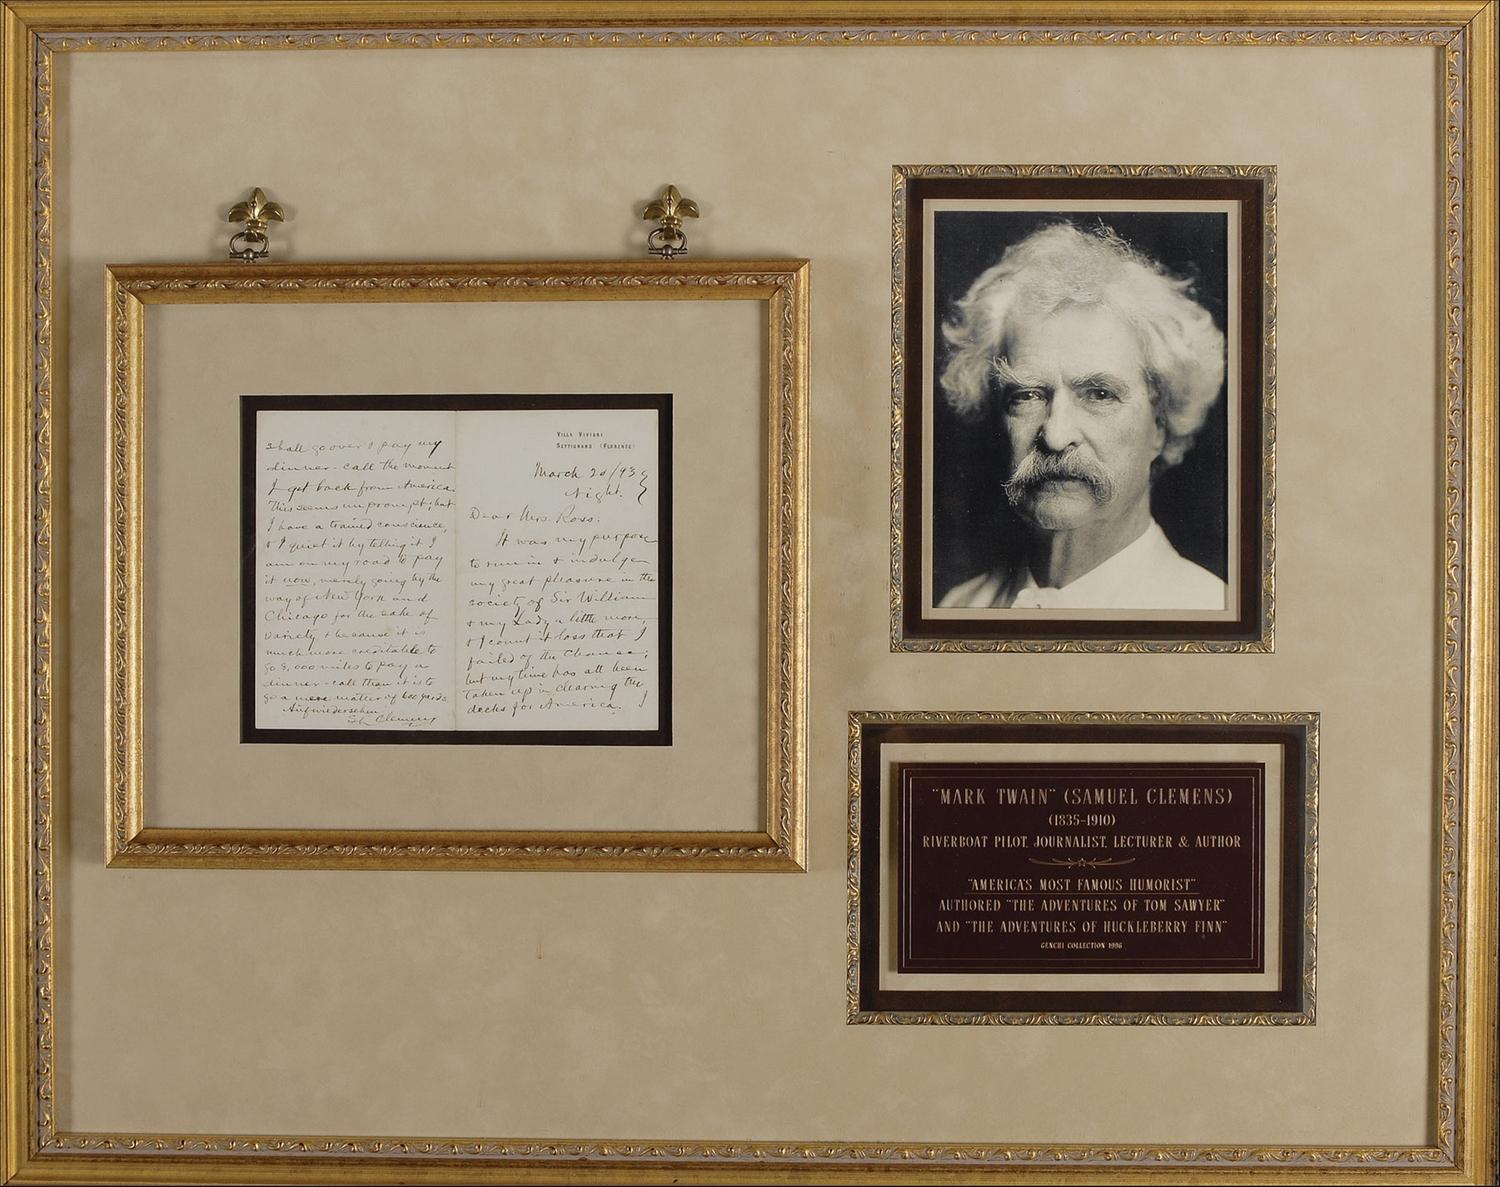 VILLA VIVIANI
SETTIGNANO (FLORENCE)
March 20/93
Night.
Dear Mrs. Ross:
It was my purpose
to run in & indulge
my great pleasure in the
society of Sir William
& my Lady a little more,
& I count it loss that I
failed of the chance;
but my time has all been
taken up in clearing the
decks for America. I
shall go over & pay my
dinner-call the moment
I get back from America.
This seems unprompt; but
I have a trained conscience,
& I quiet it by telling it I
am on my road to pay
it now, merely going by the
way of New York and
Chicago for the sake of
variety & because it is
much more creditable to
go 8,000 miles to pay a
dinner-call than it is to
go a mere matter of 600 yards.
Aufwiedersehen
SL Clemens
"MARK TWAIN" (SAMUEL CLEMENS)
(1835-1910)
RIVERBOAT PILOT, JOURNALIST, LECTURER & AUTHOR
"AMERICA'S MOST FAMOUS HUMORIST"
AUTHORED "THE ADVENTURES OF TOM SAWYER"
AND "THE ADVENTURES OF HUCKLEBERRY FINN"
GENCHI COLLECTION 1996